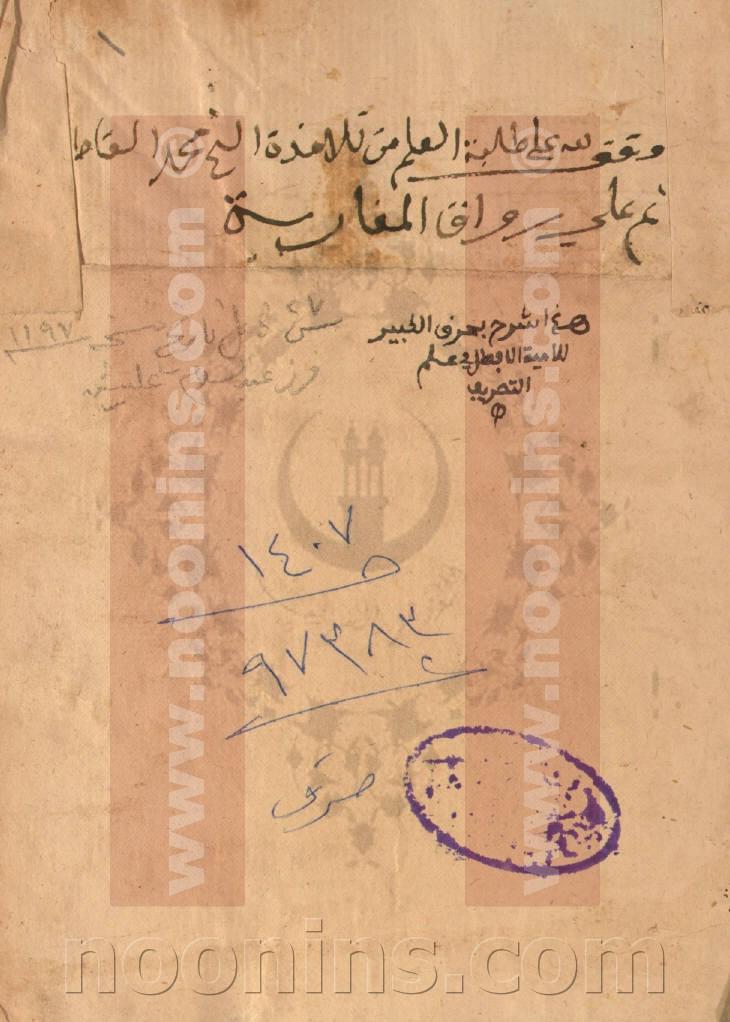 ١
وقف لله على طلبة العلم من تلامذة الشيخ محمد القاط
ثم على رواق المغاربة
هذا شرح بحرق الكبير
للامية الافعال في علم
التصريف
سنة
١١٩٧
١٤٠٧
٩٧٣٨٣
صرف
www.noonins.com
www.noonins.com
noonins.com